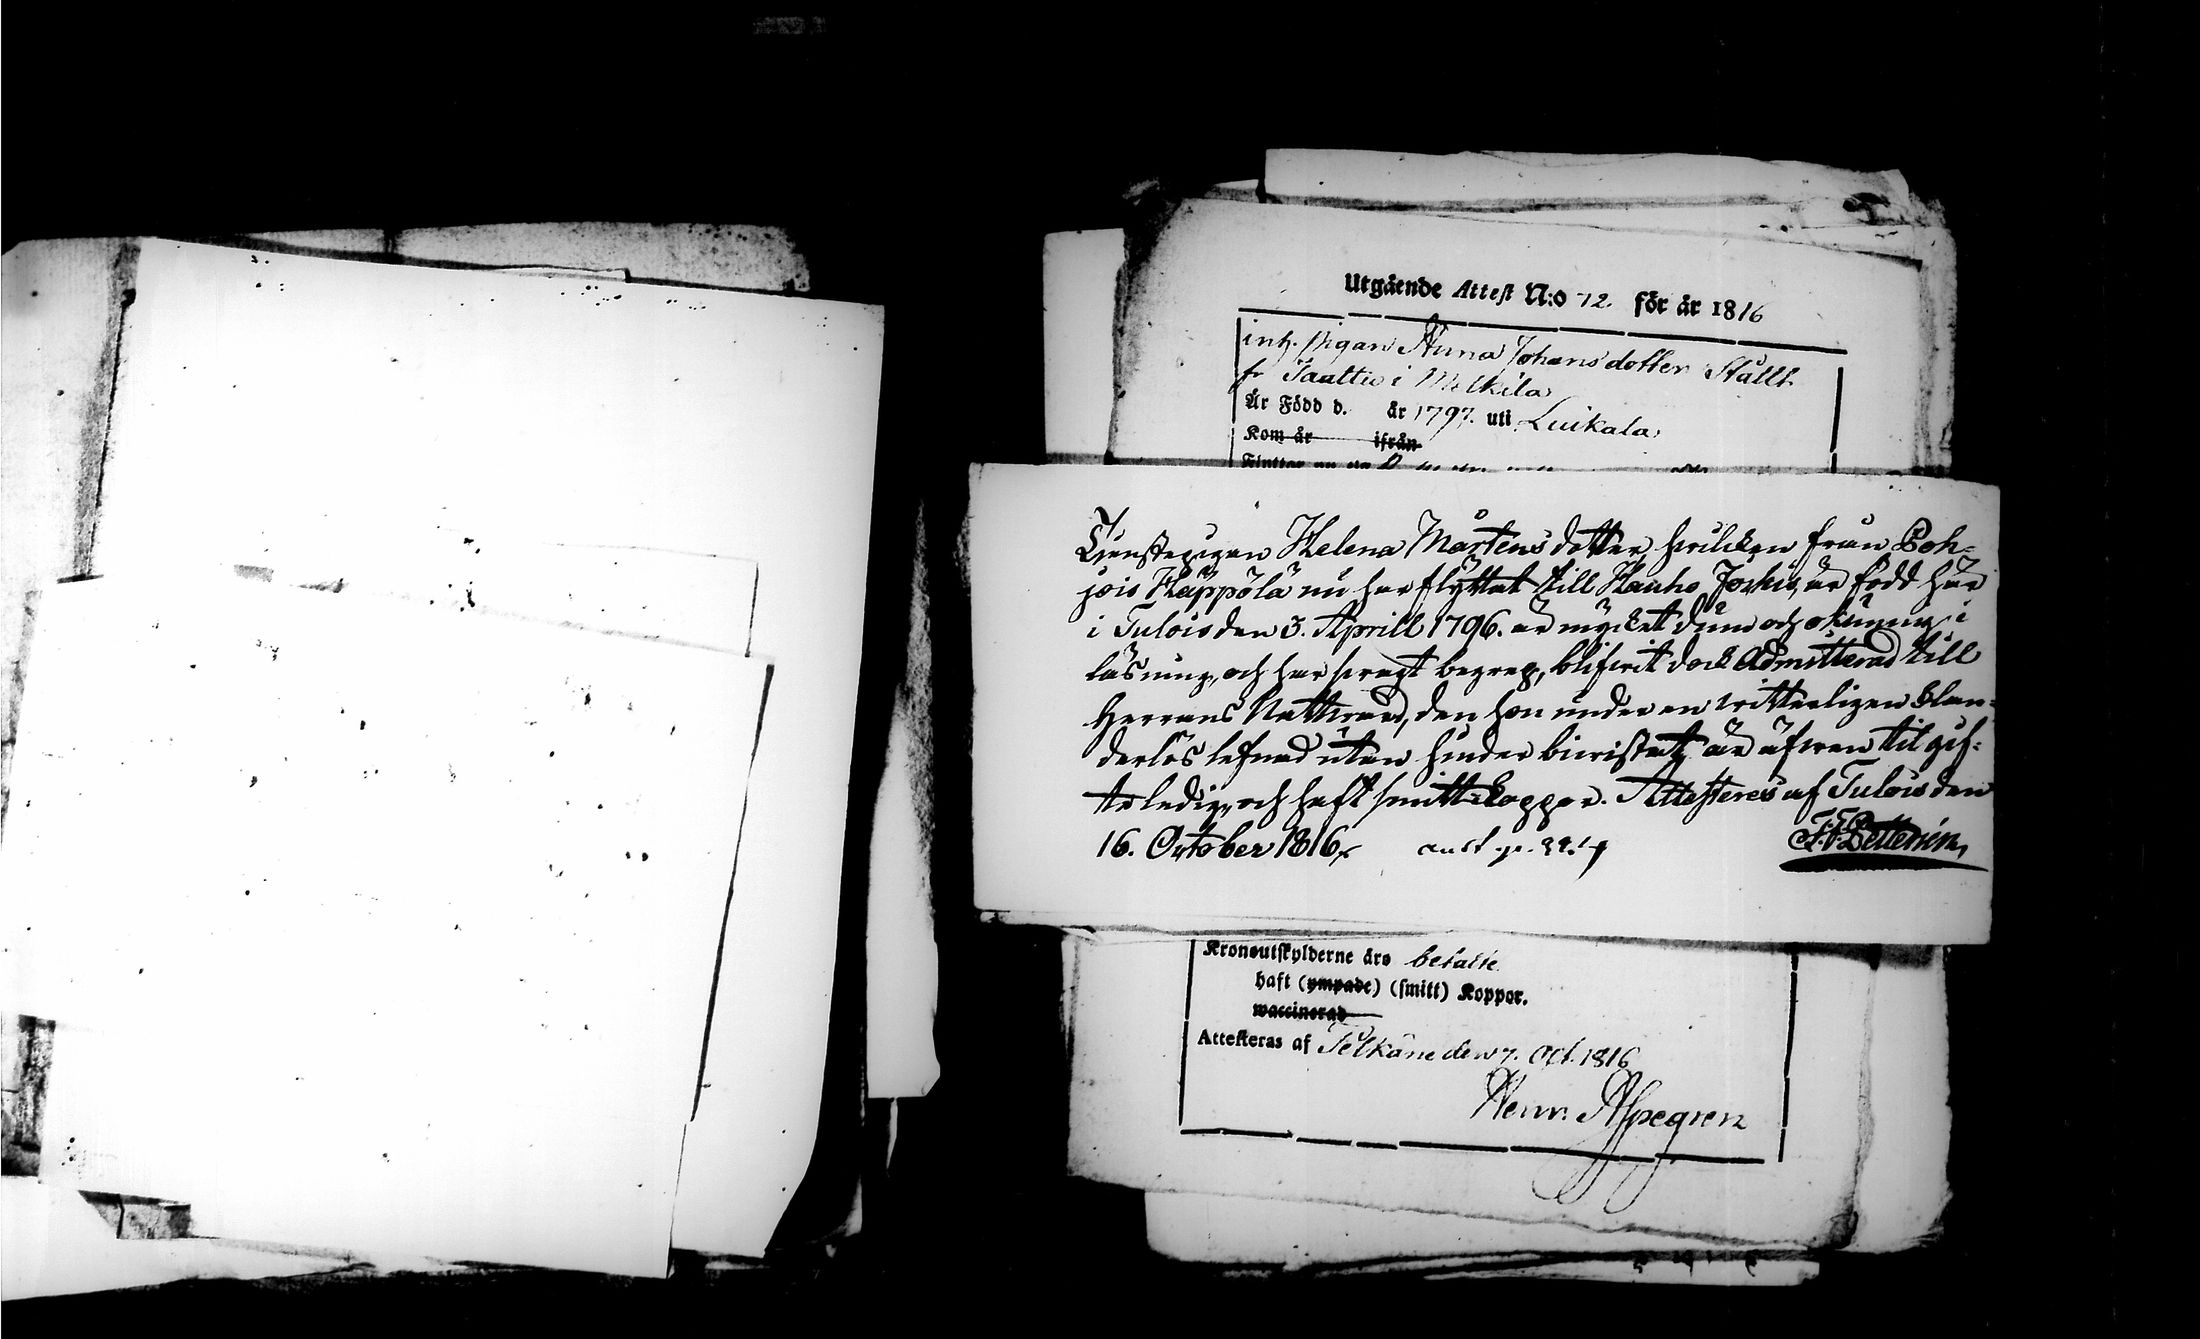 Utgående Attest N:o 72. för år 1816
inh. pigan Anna Johansdotter Ståltt
fr Taattio i Mälkilä
Är Född d. år 1797. uti Luikala,
Kom år ifrån
Tjenstepigan Helena Mårtens dotter, hvilcken från Poh-
jois Käppölä nu har flyttat till Hauho Jockis, är född här
i Tulois den 3. Aprill 1796. är mycket dum och okunnig i
läsning, och har svagt begrep, blifvit dock Admitterad till
Herrans Nattward, den hon under en witterligen Klan-
derlös lefnad utan hinder bevistat, är äfwen til gif-
te ledig, och haft smitt-koppor. Attesteres af Tulois den
16. October 1816.
Kronoutskylderne äro betalte
haft (ympade) (smitt) Koppor.
waccinerad
Attesteras af Pelkäne den 7. Oct. 1816
Henr. Aspegren